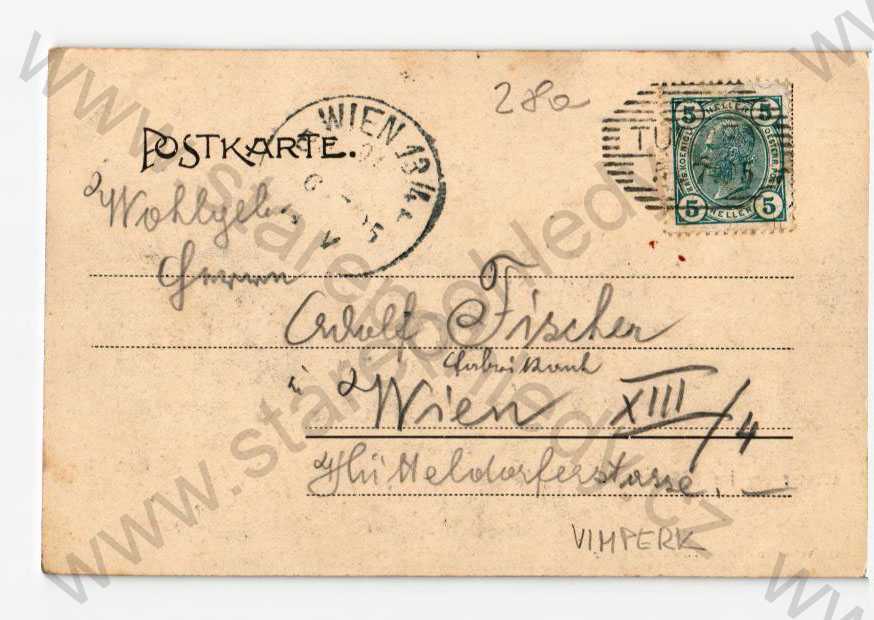 28a
POSTKARTE.
WIEN 13/4
5 HELLER 5
5 HELLER 5
TU
Wohlgeb.
Herrn
Adolf Fischer
Fabrikant
in Wien XIII/4
Hütteldorferstrasse.
VIMPERK
www.starepohledy.cz